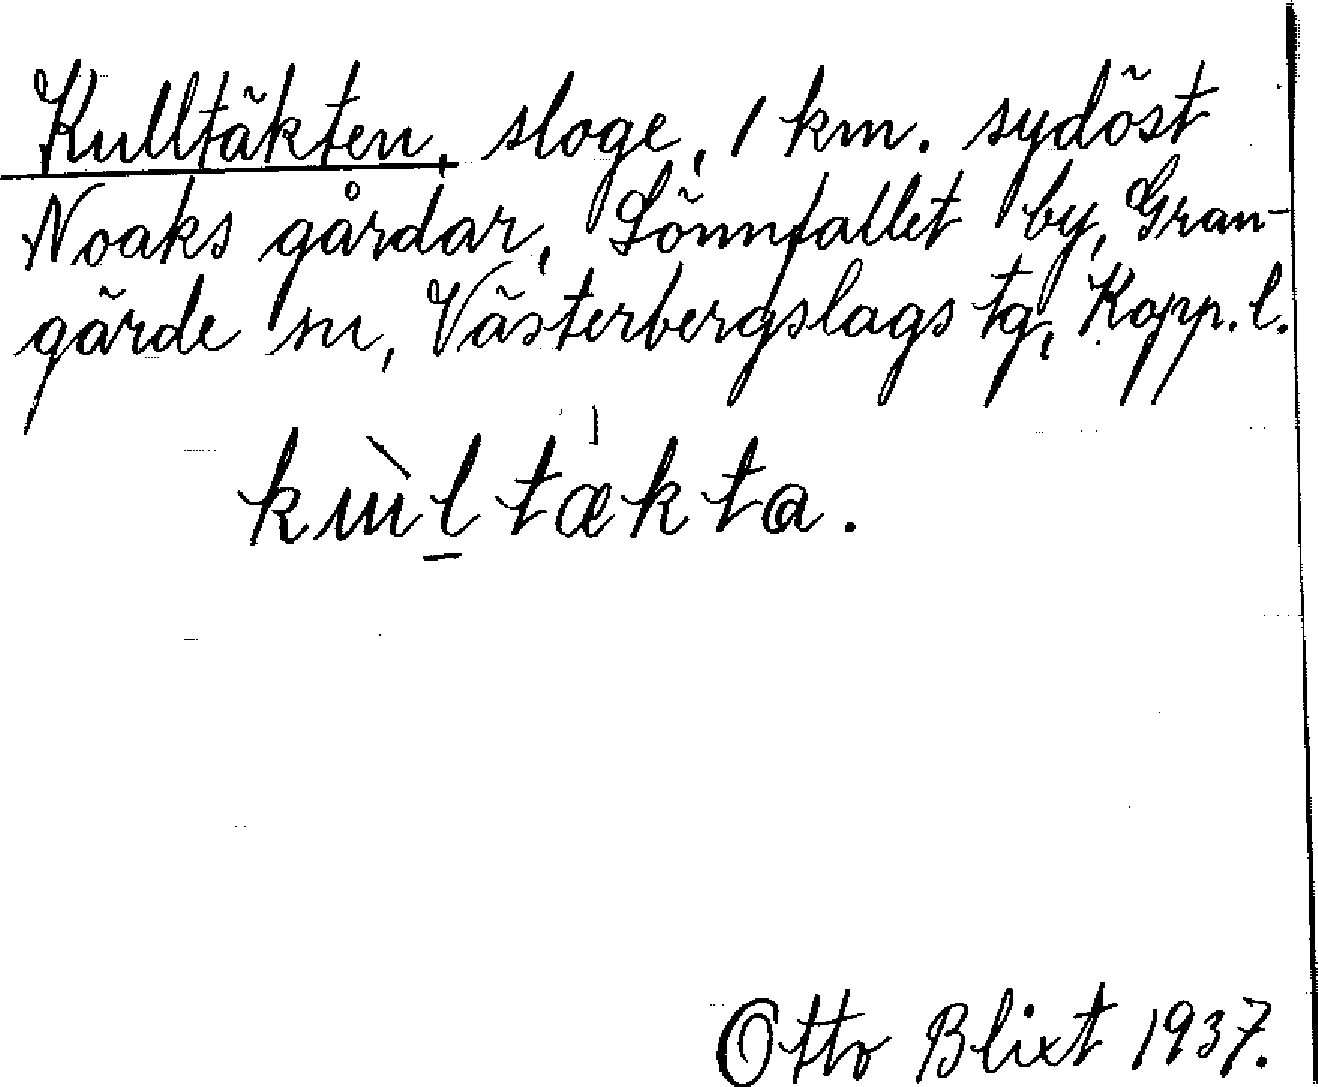 Kulltäkten, sloge, 1 km. sydöst
Noaks gårdar, Lönnfallet by, Gran-
gärde sn, Västerbergslags tg, Kopp. l.
kɯ̀l̲tækta.
Otto Blixt 1937.